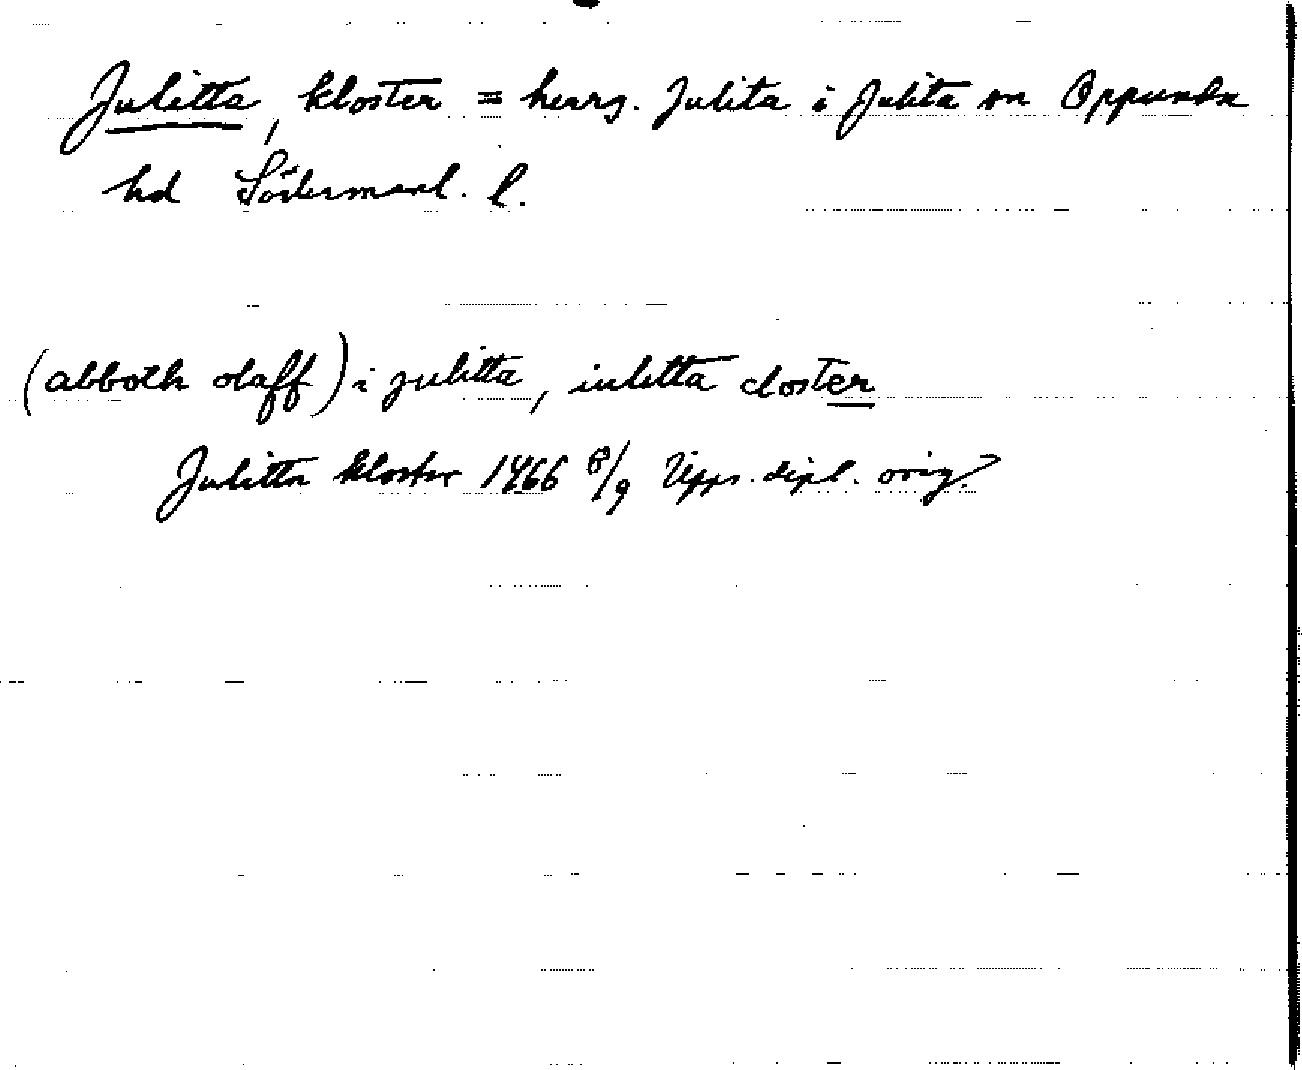 Julitta, kloster = herrg. Julita i Julita sn Oppunda
hd Södermanl. l.
(abboth olaff) i julitta, iulitta closter
Julitta kloster 1466 8/9 Upps. dipl. orig.